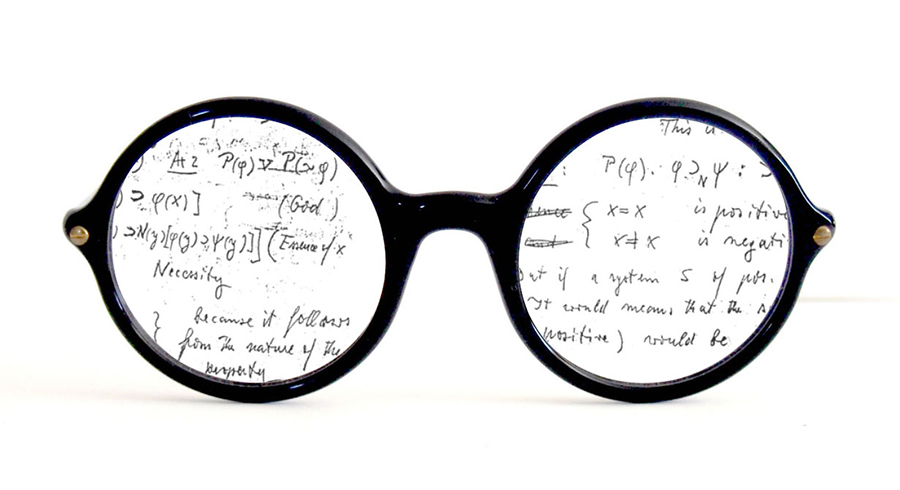 At 2 P(φ) ∨ P(∼φ)
⊃ φ(x)] (God)
) ⊃N(y)[φ(y)⊃ψ(y)]] (Essence of x
Necessity
} because it follows
from the nature of the
property
This is
: P(φ). φ⊃Nψ : ⊃
{ x=x is positive
x≠x is negati
ut if a system S of pos.
It would means that the s
positive) would be